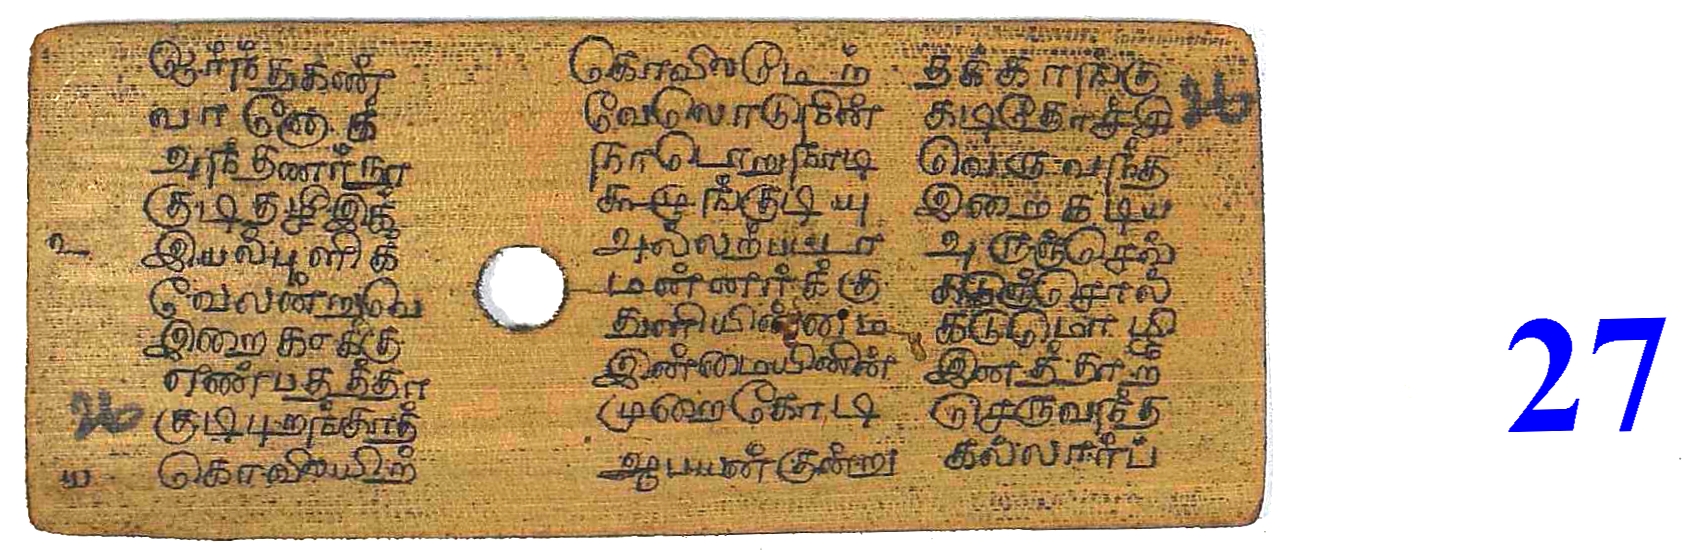 ஓர்ந்துகண்
வானோக்
அந்தணர்நூ
குடிதழீஇக்
இயல்புளிக்
வேலன்றுவெ
இறைகாக்கு
எண்பதத்தா
குடிபுறங்காத்
கொலையிற்
கொலைமேற்
வேலொடுநின்
நாடொறுநாடி
கூழுங்குடியு
அல்லற்பட்டா
மன்னர்க்கு
துளியின்மை
இன்மையினின்
முறைகோடி
ஆபயன்குன்று
தக்காங்கு
கடிதோச்சி
வெருவந்த
இறைகடிய
அருஞ்செவ்
கடுஞ்சொல்
கடுமொழி
இனத்தாற்
செருவந்த
கல்லார்ப்
27